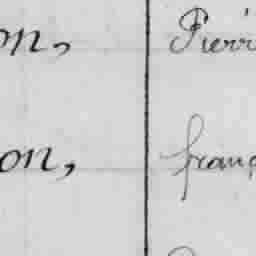 on, Pierr
on, franç